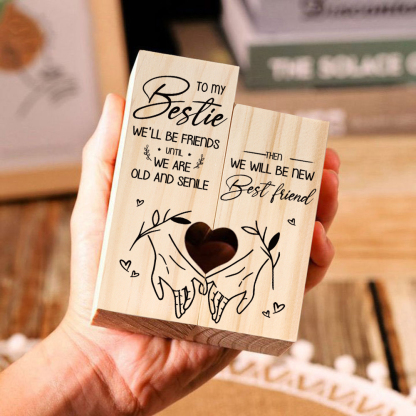 TO MY
Bestie
WE'LL BE FRIENDS
UNTIL
WE ARE
OLD AND SENILE
THEN
WE WILL BE NEW
Best friend
THE SOLACE O